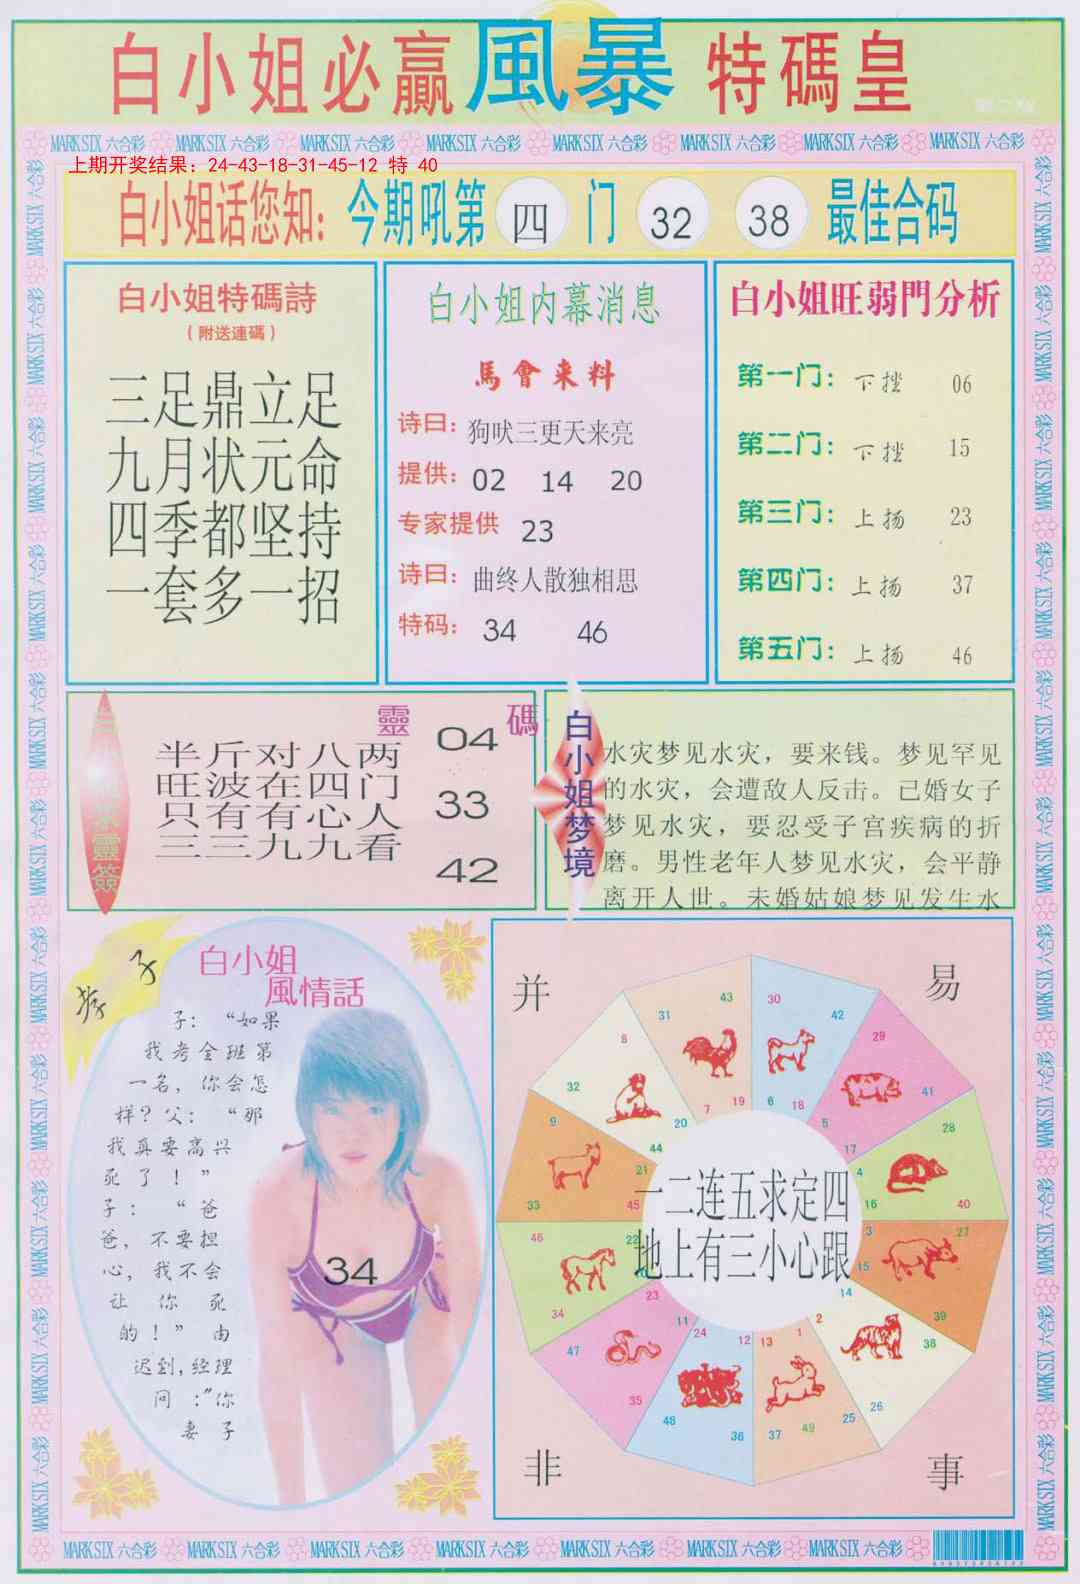 白小姐必贏風暴特碼皇
MARK SIX 六合彩 MARK SIX 六合彩 MARK SIX 六合彩 MARK SIX 六合彩 MARK SIX 六合彩 MARK SIX 六合彩 MARK SIX 六合彩 MARK SIX 六合彩
上期开奖结果：24-43-18-31-45-12 特 40
白小姐话您知：今期吼第 四 门 32 38 最佳合码
白小姐特碼詩
（附送連碼）
三足鼎立足
九月状元命
四季都坚持
一套多一招
白小姐内幕消息
馬會来料
诗曰：狗吠三更天来亮
提供：02 14 20
专家提供 23
诗曰：曲终人散独相思
特码：34 46
白小姐旺弱門分析
第一门：下挫 06
第二门：下挫 15
第三门：上扬 23
第四门：上扬 37
第五门：上扬 46
靈碼
半斤对八两
旺波在四门
只有有心人
三三九九看
04
33
42
白小姐梦境
水灾梦见水灾，要来钱。梦见罕见
的水灾，会遭敌人反击。已婚女子
梦见水灾，要忍受子宫疾病的折
磨。男性老年人梦见水灾，会平静
离开人世。未婚姑娘梦见发生水
白小姐
風情話
子：“如果
我考全班第
一名，你会怎
样？父：“那
我真要高兴
死了！”
子：“爸
爸，不要担
心，我不会
让你死
的！”由
迟到，经理
问：“你
妻子
34
并 易
非 事
一二连五求定四
地上有三小心跟
31 43 7 19
30 42 6 18
29 41 5 17
28 40 4 16
27 39 3 15
38 26 2 14
1 13 25 37 49
12 24 36 48
11 23 35 47
46 34 22
9 21 33 45
8 20 32 44
MARK SIX 六合彩 MARK SIX 六合彩 MARK SIX 六合彩 MARK SIX 六合彩 MARK SIX 六合彩 MARK SIX 六合彩 MARK SIX 六合彩